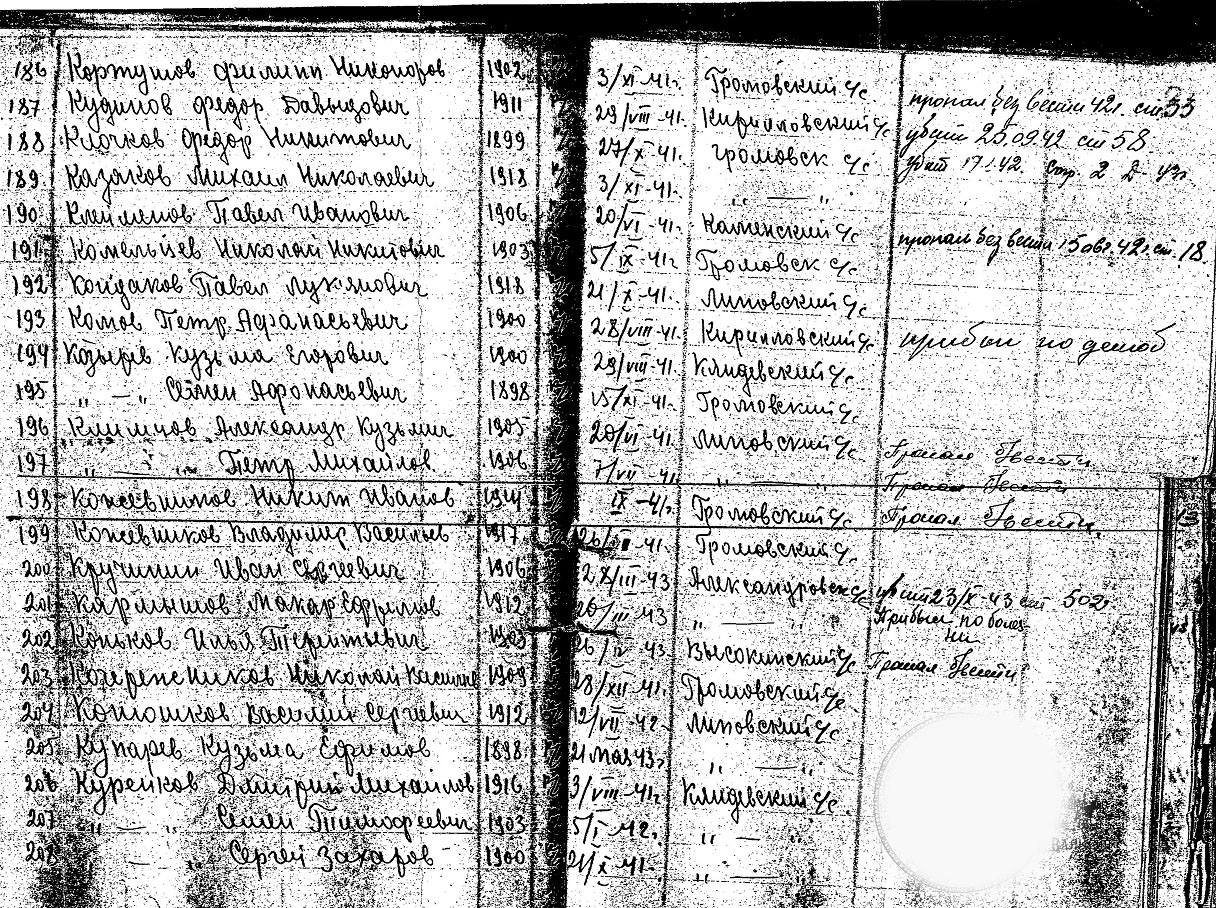 186 Кортунов Филипп Никоноров 1902 3/XI-41г. Громовский с/с
187 Кудинов Федор Давыдович 1911 29/VIII-41. Кирилловский с/с пропал без вести 42г. ст 33
188 Клочков Федор Никитович 1899 27/X-41. Громовск с/с убит 25.09.42 ст 58.
189 Казаков Михаил Николаевич 1918 3/XI-41. „ — „ убит 17.1.42. стр. 2 Д- 43г.
190 Клеменов Павел Иванович 1906 20/VI-41. Каменский с/с
191 Николай Никитович 1903 5/IX-41г. Громовск с/с пропал без вести 15 авг. 42г. ст. 18.
192 Кондаков Павел Лукянович 1918 21/X-41. Липовский с/с
193 Комов Петр Афанасьевич 1900 28/VIII-41. Кирилловский с/с прибыл по демоб
194 Козырев Кузьма Егорович 1900 29/VIII-41. Клидевский с/с
195 „ — „ Семен Афонасьевич 1898 15/XI-41. Громовский с/с
196 Климчов Александр Кузьмич 1905 20/VI-41 Липовский с/с Пропал б/вести
197 „ — „ Петр Михайлов 1906 7/VII-41. „ — „ Пропал б/вести
198 Кожевников Никит Иванов 1914 IX-41г. Громовский с/с Пропал б/вести
199 Кожевников Владимир Васильев 1917 -41. Громовский с/с
200 Кручинин Иван Сергеевич 1906 28/III-43 Александровск с/с убит 23/X-43 ст 502
201 Макар Ефремов 1912 26/III-43 „ — „ Прибыл по болезни
202 Коньков Илья Терентьевич 1903 -43. Высокинский с/с Пропал б/вести
203 Николай 1909 28/XII-41. Громовский с/с
204 Конюшков Василий Сергеевич 1912 12/VII-42. Липовский с/с
205 Купарев Кузьма Ефимов 1898 21 мая 43г „ — „
206 Курейков Дмитрий Михайлов 1916 3/VIII-41г Клидевский с/с
207 „ — „ Семен Тимофеевич 1903 5/I-42. „ — „
208 — „ Сергей Захаров 1900 21/X-41. „ — „